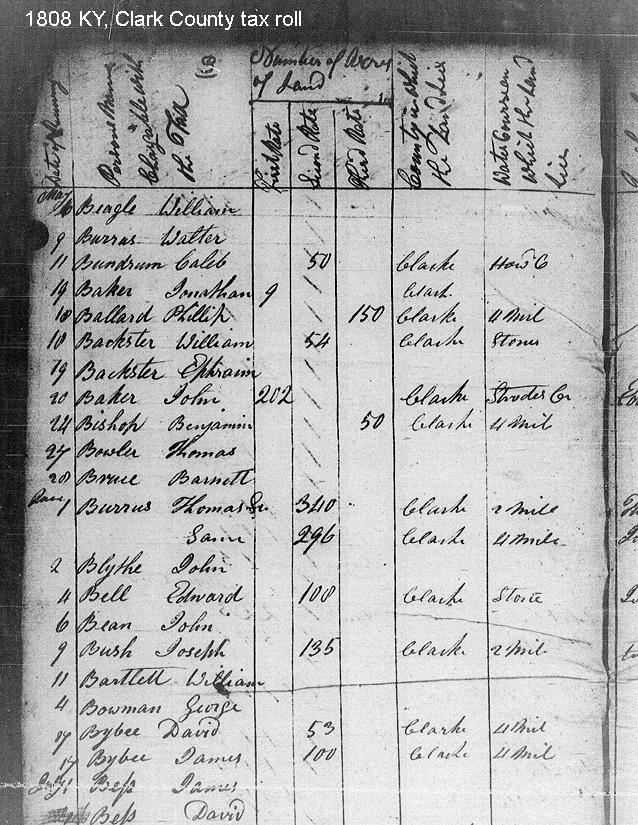 1808 KY, Clark County tax roll
Persons Names Chargeable with the Tax
Number of Acres of Land
First Rate
Second Rate
Third Rate
County in which the Land Lies
Water Courses on Which the Land Lies
May
Beagle William
9 Burras Walter
11 Bundrum Caleb 50 Clarke How C
19 Baker Jonathan 9 Clark
18 Ballard Phillip 150 Clarke 4 Mil
18 Backster William 54 Clarke Stones
19 Backster Ephraim
20 Baker John 202 Clarke Strodes Cr
24 Bishop Benjamin 50 Clarke 4 Mil
27 Bowler Thomas
28 Bruce Barnett
1 Burrus Thomas Sr 340 Clarke 2 Mile
Same 296 Clarke 4 Mile
2 Blythe John
4 Bell Edward 108 Clarke Stone
6 Bean John
9 Bush Joseph 135 Clarke 2 Mil
11 Bartlett William
4 Bowman George
17 Bybee David 53 Clarke 4 Mil
17 Bybee James 100 Clarke 4 Mil
Beſs James
Beſs David